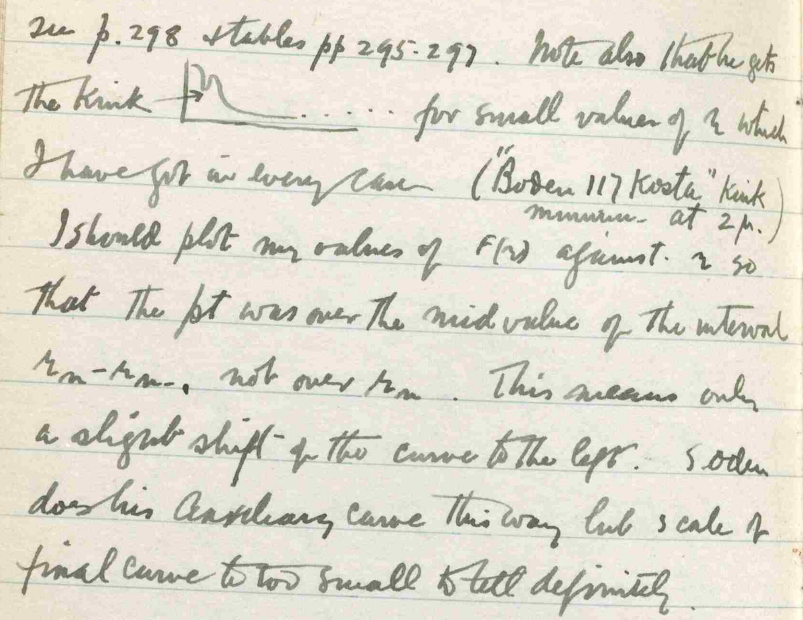 see p. 298 & tables pp 295-297. Note also that he gets
the kink for small values of r which
I have got in every case ("Boden 117 Kosta" kink
minimum at 2 μ.)
I should plot my values of F(r) against r so
that the pt was over the mid value of the interval
rₙ-rₙ₋₁, not over rₙ. This means only
a slight shift of the curve to the left. Soden
does his auxiliary curve this way but scale of
final curve to too small to tell definitely.